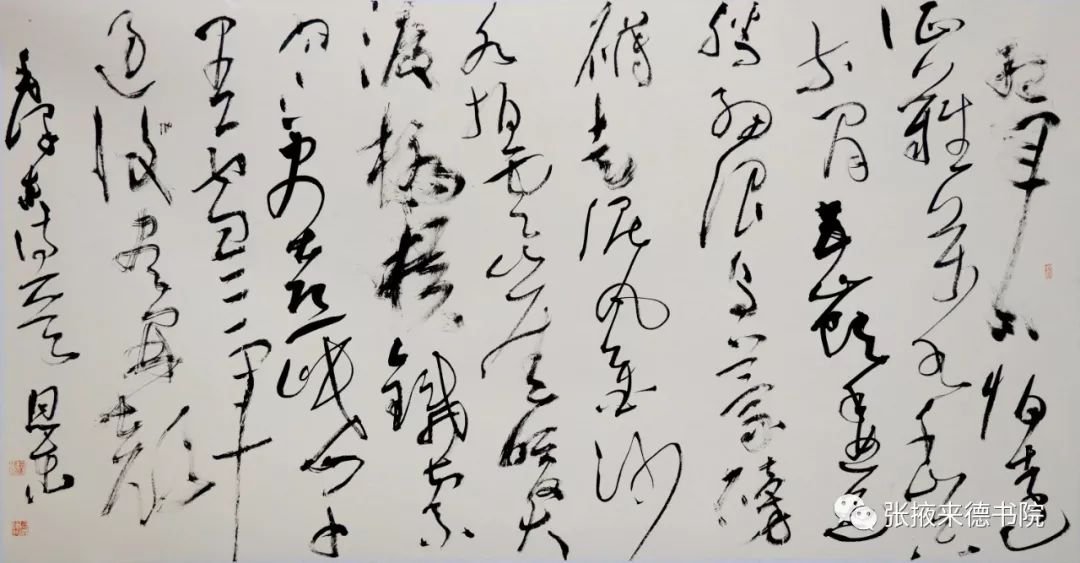 红军不怕远
征難万水千山只
等闲五嶺逶迤
腾细浪乌蒙磅
礴走泥丸金沙
水拍云崖暖大
渡橋横鐵索
寒更喜岷山千
里雪三军
过後尽開颜
毛泽东诗一首 恩
张掖来德书院